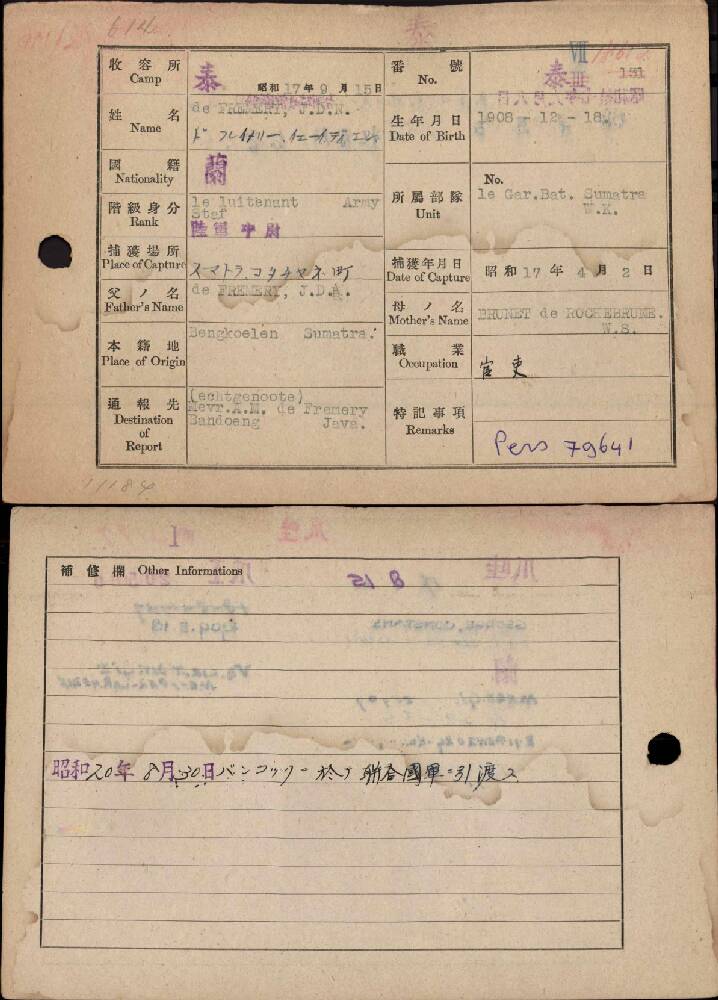 614
泰
VII
收容所
Camp
泰
昭和17年9月15日
番號
No.
泰III 151
姓名
Name
de FREMERY, J.D.N.
生年月日
Date of Birth
1908 - 12 - 18
國籍
Nationality
蘭
階級身分
Rank
1e luitenant Army
Staf
陸軍中尉
所屬部隊
Unit
No.
1e Gar.Bat. Sumatra
W.K.
捕獲場所
Place of Capture
スマトラ、コタチヤネ町
捕獲年月日
Date of Capture
昭和17年4月2日
父ノ名
Father's Name
de FREMERY, J.D.A.
母ノ名
Mother's Name
BRUNET de ROCHEBRUNE.
W.S.
本籍地
Place of Origin
Bengkoelen Sumatra.
職業
Occupation
官吏
通報先
Destination
of
Report
(echtgenoote)
Mevr.A.M. de Fremery
Bandoeng Java.
特記事項
Remarks
Pers 79641
11184
補修欄 Other Informations
昭和20年8月30日バンコックニ於テ聯合國軍ニ引渡ス